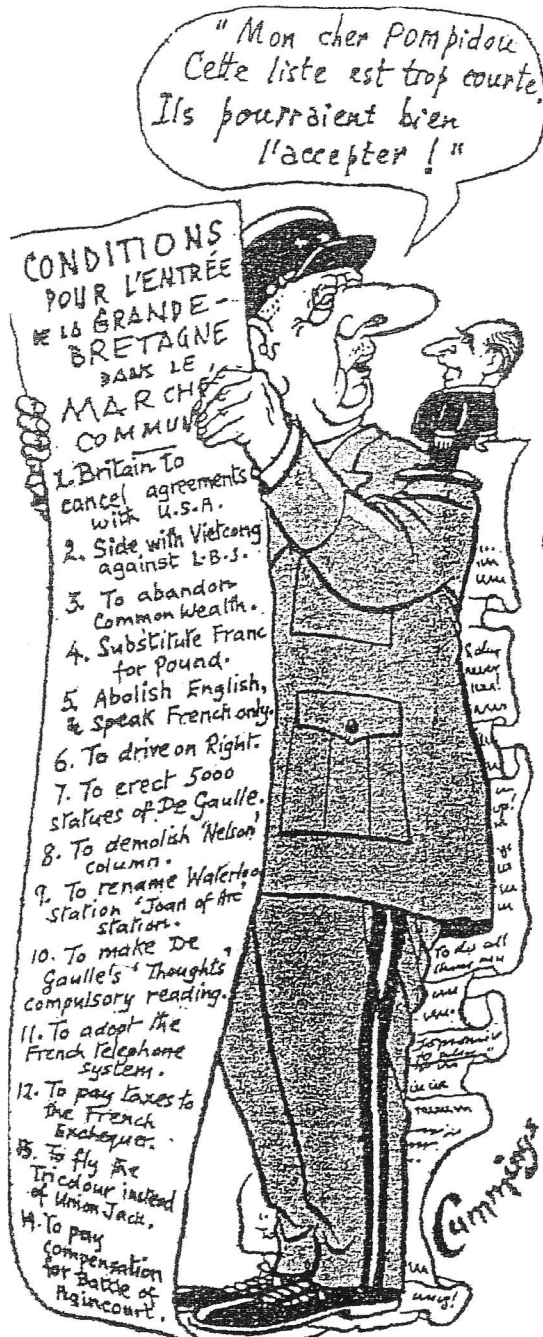 "Mon cher Pompidou
Cette liste est trop courte.
Ils pourraient bien
l'accepter!"
CONDITIONS
POUR L'ENTRÉE
DE LA GRANDE-
BRETAGNE
DANS LE
MARCHÉ
COMMUN
1. Britain to
cancel agreements
with U.S.A.
2. Side with Vietcong
against L.B.J.
3. To abandon
Commonwealth.
4. Substitute Franc
for Pound.
5. Abolish English,
& Speak French only.
6. To drive on Right.
7. To erect 5000
statues of De Gaulle.
8. To demolish 'Nelson'
column.
9. To rename Waterloo
Station 'Joan of Arc'
station.
10. To make De
Gaulle's 'Thoughts'
compulsory reading.
11. To adopt the
French telephone
system.
12. To pay taxes to
the French
Exchequer.
13. To fly the
Tricolour instead
of Union Jack.
14. To pay
compensation
for Battle of
Agincourt.
To
all
Cummings